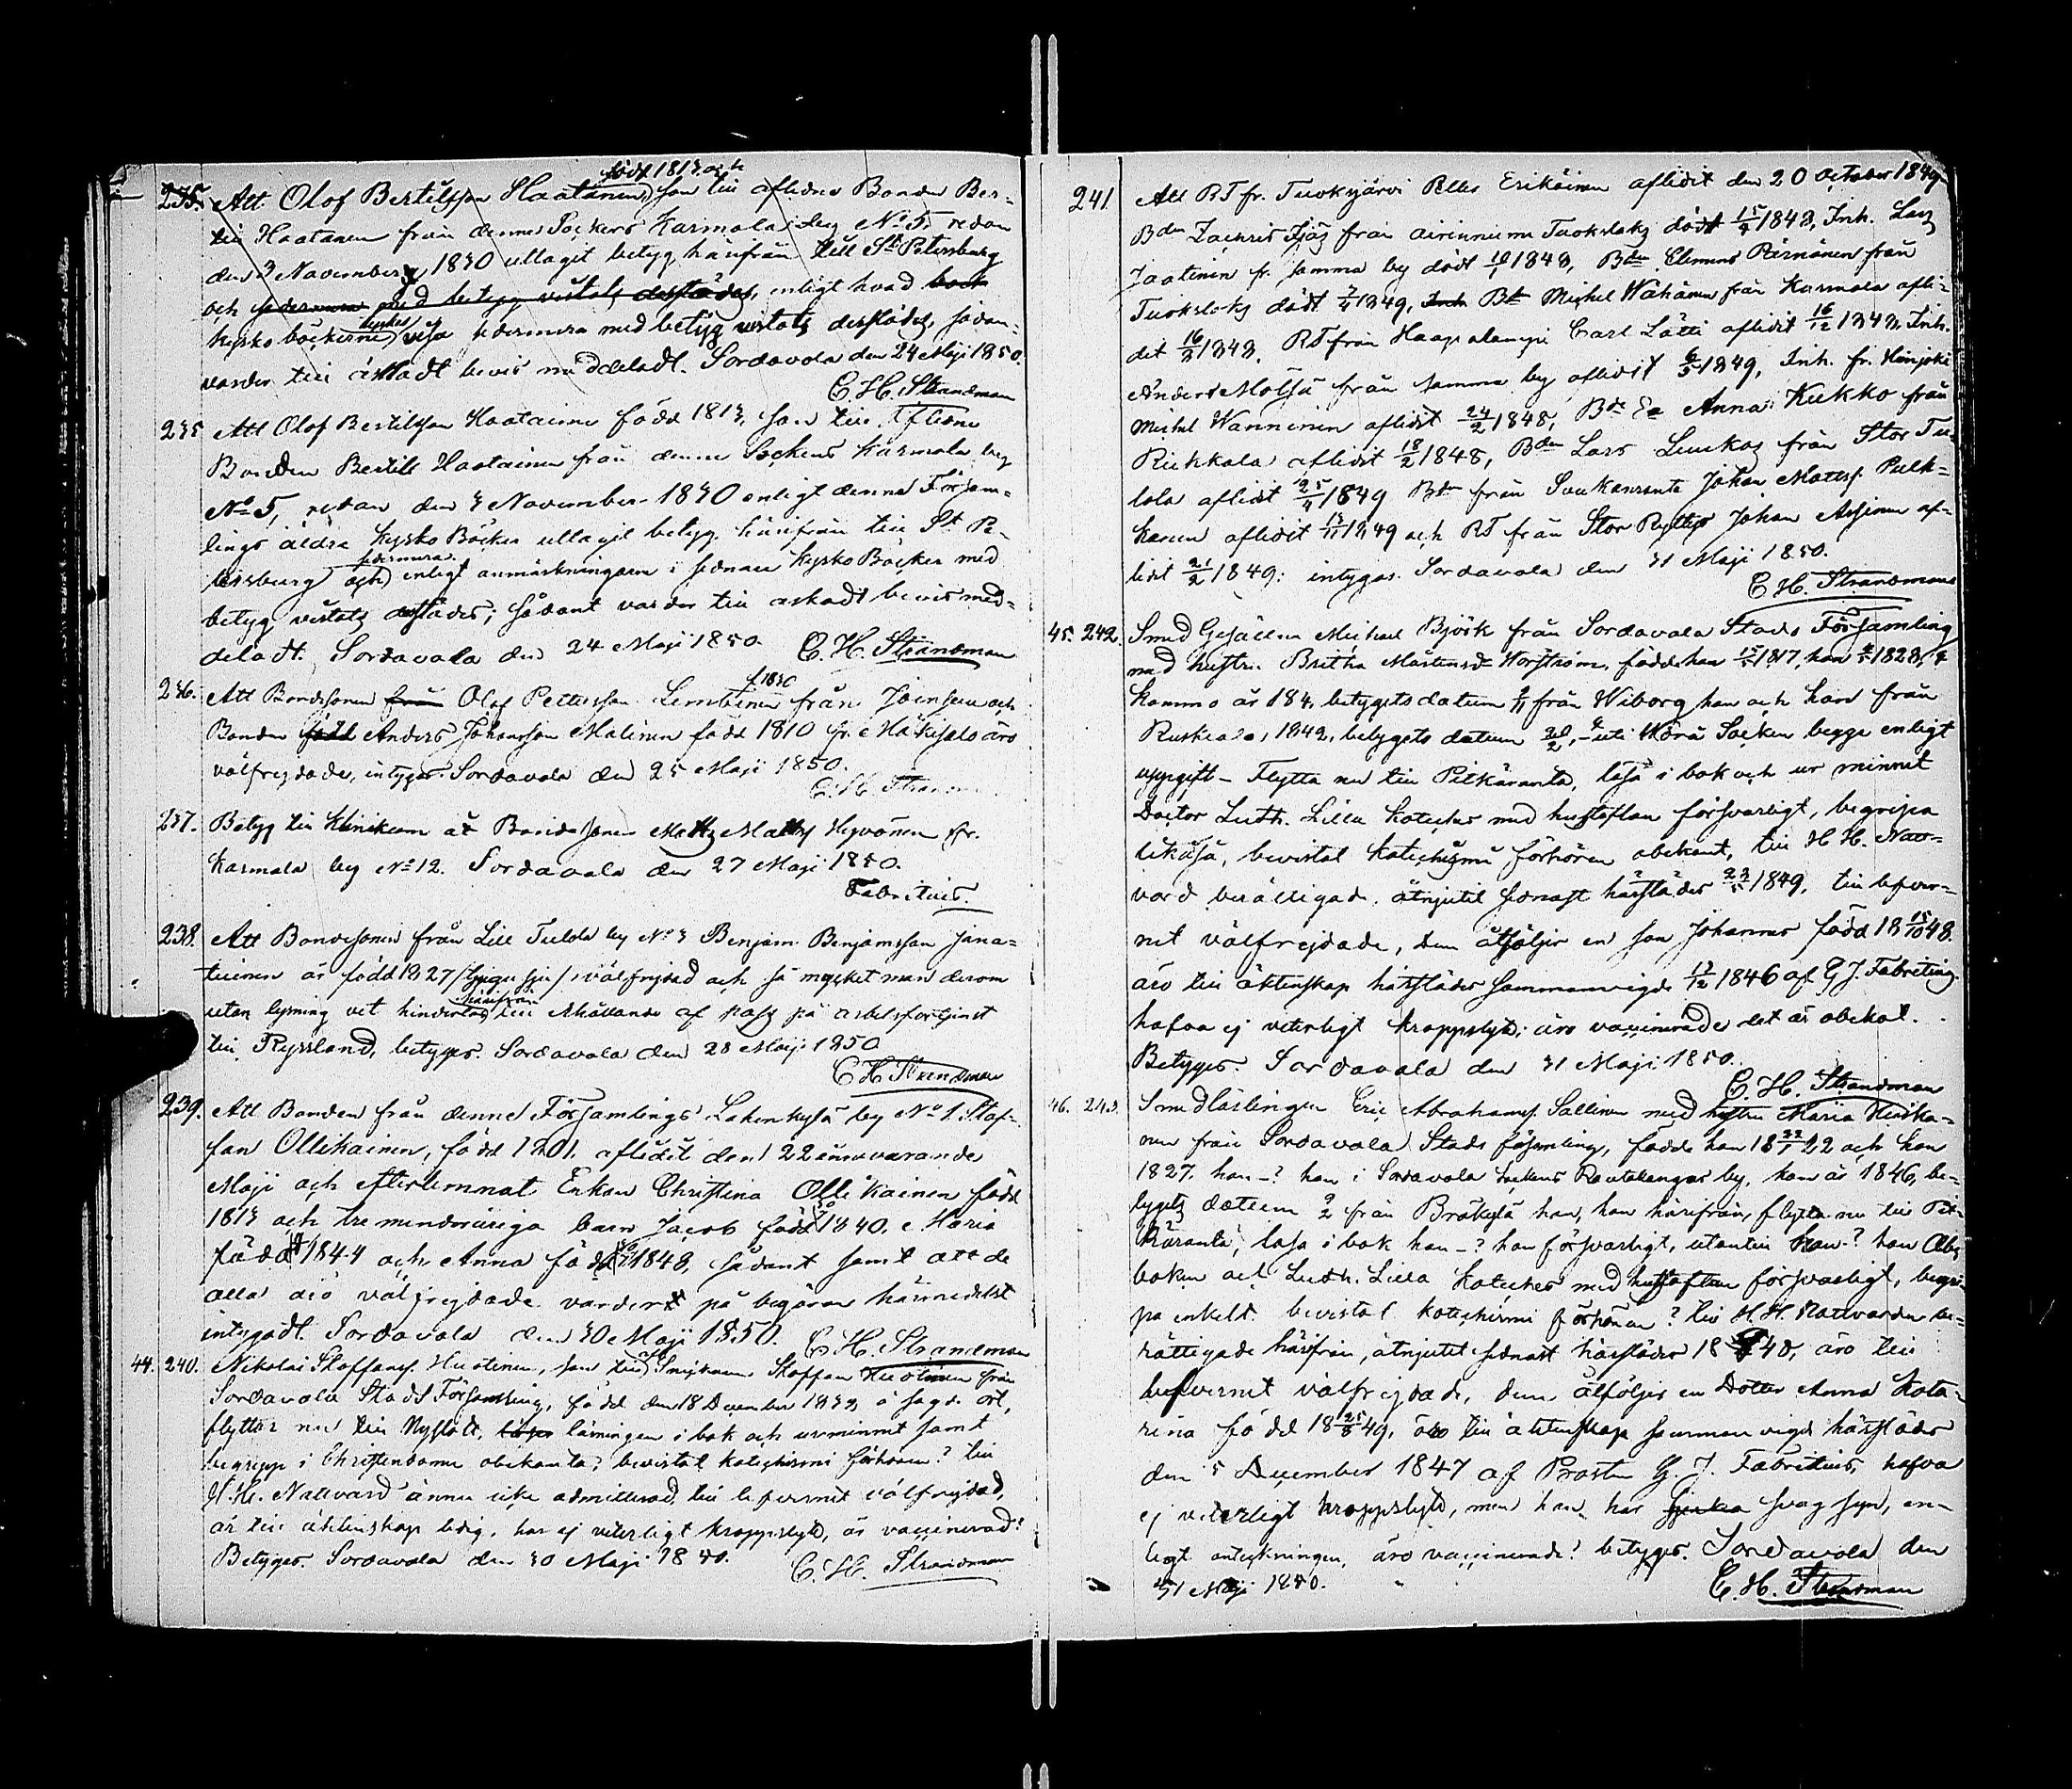 född 1813 och
235. Att Olof Bertilsson Haatanen, son till aflidne Bonden Ber-
till Haatanen från denne Sockens Karmala by No 5, redan
den 3 November 1830 uttagit betyg härifrån till St Petersburg
och sedermera med betyg vistats derstädes, enligt hvad bok
kyrko böckerne visa sedermera med betyg vistats derstädes, sådan-
varder till äskadt bevis meddeladt. Sordavala den 24 Maji 1850.
C. H. Strandman
235 Att Olof Bertilsson Haatainen född 1813, son till Aflidne
Bonden Bertill Haatainen från denne Sockens Karmala by
No 5, redan den 3 November 1830 enligt denna Försam-
lings äldre Kyrko Böcker uttagit betyg härifrån till St Pe-
sedermera
tersburg och enligt anmärkningarne i sednare Kyrko Böcker med
betyg vistats derstädes; sådant varder till äskadt bevis med-
deladt. Sordavala den 24 Maji 1850. C. H. Strandman
f 1830
236. Att Bondesonen från Olof Pettersson Lembinen från Joensuu och
Bonden född Anders Johansson Malinen född 1810 fr. Mäkisalo äro
välfrejdade, intygas. Sordavala den 25 Maji 1850.
C. H. Strandman
237. Betyg till Klinikum åt Bondesonen Matts Mattsf Hyvönen fr.
Karmala by No 12. Sordavala den 27 Maji 1850.
Fabritius.
238. Att Bondesonen från Lill Tulola by No 3 Benjam. Benjamsson Jana-
tuinen är född 1827, välfrejdad och så mycket man derom
härifrån
utan lysning vet hinderlös till erhållande af pass på arbetsförtjenst
till Ryssland, betygas. Sordavala den 28 Maji 1850
C H Strandman
239. Att Bonden från denne Församlings Lahenkylä by No 1. Staf-
fan Ollikainen, född 1801. aflidit den 22 innevarande
Maji och efterlemnat Enkan Christina Ollikainen född
1813 och tre minderåriga barn Jacob född 1840. Maria
född 1844 och Anna född 1848, sådant samt att de
alla äro välfrejdade varder på begäran härmedelst
intygadt. Sordavala den 30 Maji 1850. C. H. Strandman
44. 240. Nikolai Staffansf. Huotinen, son till Snickaren Staffan Huotinen från
Sordavala Stads Församling, född den 18 December 1832 å sagde ort,
flyttar nu till Nyslott, läser läsningen i bok och ur minnet samt
begrepp i Christendomen obekanta; bevistat katechismi förhören? till
H. H. Nattvard ännu icke admitterad, till lefvernet välfrejdad,
är till äktenskap ledig, har ej veterligt kroppslyte, är vaccinerad?
Betygas. Sordavala den 30 Maji 1850. C. H. Strandman
241. Att RT fr. Tuoksjärvi Pelle Erikäinen aflidit den 20 October 1849
Bden Zachris från Tuokslaks död 15/4 1848, Inh. Lars
Jaatinen fr. samma by död 10/1 1848, Bde Clemens Pärnänen från
Tuokslaks död 7/4 1849, Inh Bde Michel Wäkäinen från Karmala afli-
dit 16/3 1848, RT från Haapalampi Carl Lätti aflidit 16/12 1848, Inh.
Anders Mölsä från samma by aflidit 6/5 1849, Inh. fr. Hämjoki
Michel Wänninen aflidit 24/2 1848, Bde Ea Anna Kukko från
Riekkala aflidit 18/2 1848, Bden Lars Leuckos från Stor Tu-
lola aflidit 25/4 1849 Bde från Suukanranta Johan Mattsf. Pulk-
kanen aflidit 1849 och RT från Stor Rytty Johan af-
lidit 21/2 1849: intygas. Sordavala den 31 Maji 1850.
C. H. Strandman
45. 242. Smed Gesällen Michael Björk från Sordavala Stads Församling
med hustru Britha Mårtensd. Norström, födde han 15/5 1817, hon 1828,
komne år 184, betygets datum från Wiborg han och hon från
Ruskeala, 1842, betygets datum 20/2, uti Socken begge enligt
uppgift - Flytta nu till Pitkäranta, läsa i bok och ur minnet
Doctor Luth. Lilla Kateches med hustaflan försvarligt, begripa
likaså, bevistat katechismi förhören obekant, till H H. Natt-
vard berättigade, åtnjutit sednast härstädes 23/5 1849, till lefver-
net välfrejdade, dem åtföljer en son Johannes född 18 15/10 48.
äro till äktenskap härstädes sammanvigde 13/12 1846 af G J. Fabritius.
hafva ej veterligt kroppslyte; äro vaccinerade det är obekat.
Betygas. Sordavala den 31 Maji 1850.
C. H. Strandman
46. 243. Smedlärlingen Eric Abrahamsf. Sallinen med hustru Maria Hiiska-
nen från Sordavala Stads församling, födde han 18 22/7 22 och hon
1827. han -? hon i Sordavala Sockens Rautakangas by, kom år 1846, be-
tygets datum 9/2 från Bräkylä han, hon härifrån, flytta nu till Pit-
käranta, läsa i bok han -? hon försvarligt, utantill han -? hon Abc
boken och Luth. Lilla Kateches med hustaflan försvarligt, begri-
pa enkelt bevistat katechismi förhören? till H. H. Nattvarden be-
rättigade härifrån, åtnjutit sednast härstädes 18 48, äro till
lefvernet välfrejdade, dem åtföljer en Dotter Anna Kata-
rina född 18 25/8 49, äro till äktenskap sammanvigde härstädes
den 5 December 1847 af Prosten G. J. Fabritius, hafva
ej veterligt kroppslyte, men han har svag syn, en-
ligt anteckningen, äro vaccinerade? betygas. Sordavala den
31 Maji 1850. C. H. Strandman